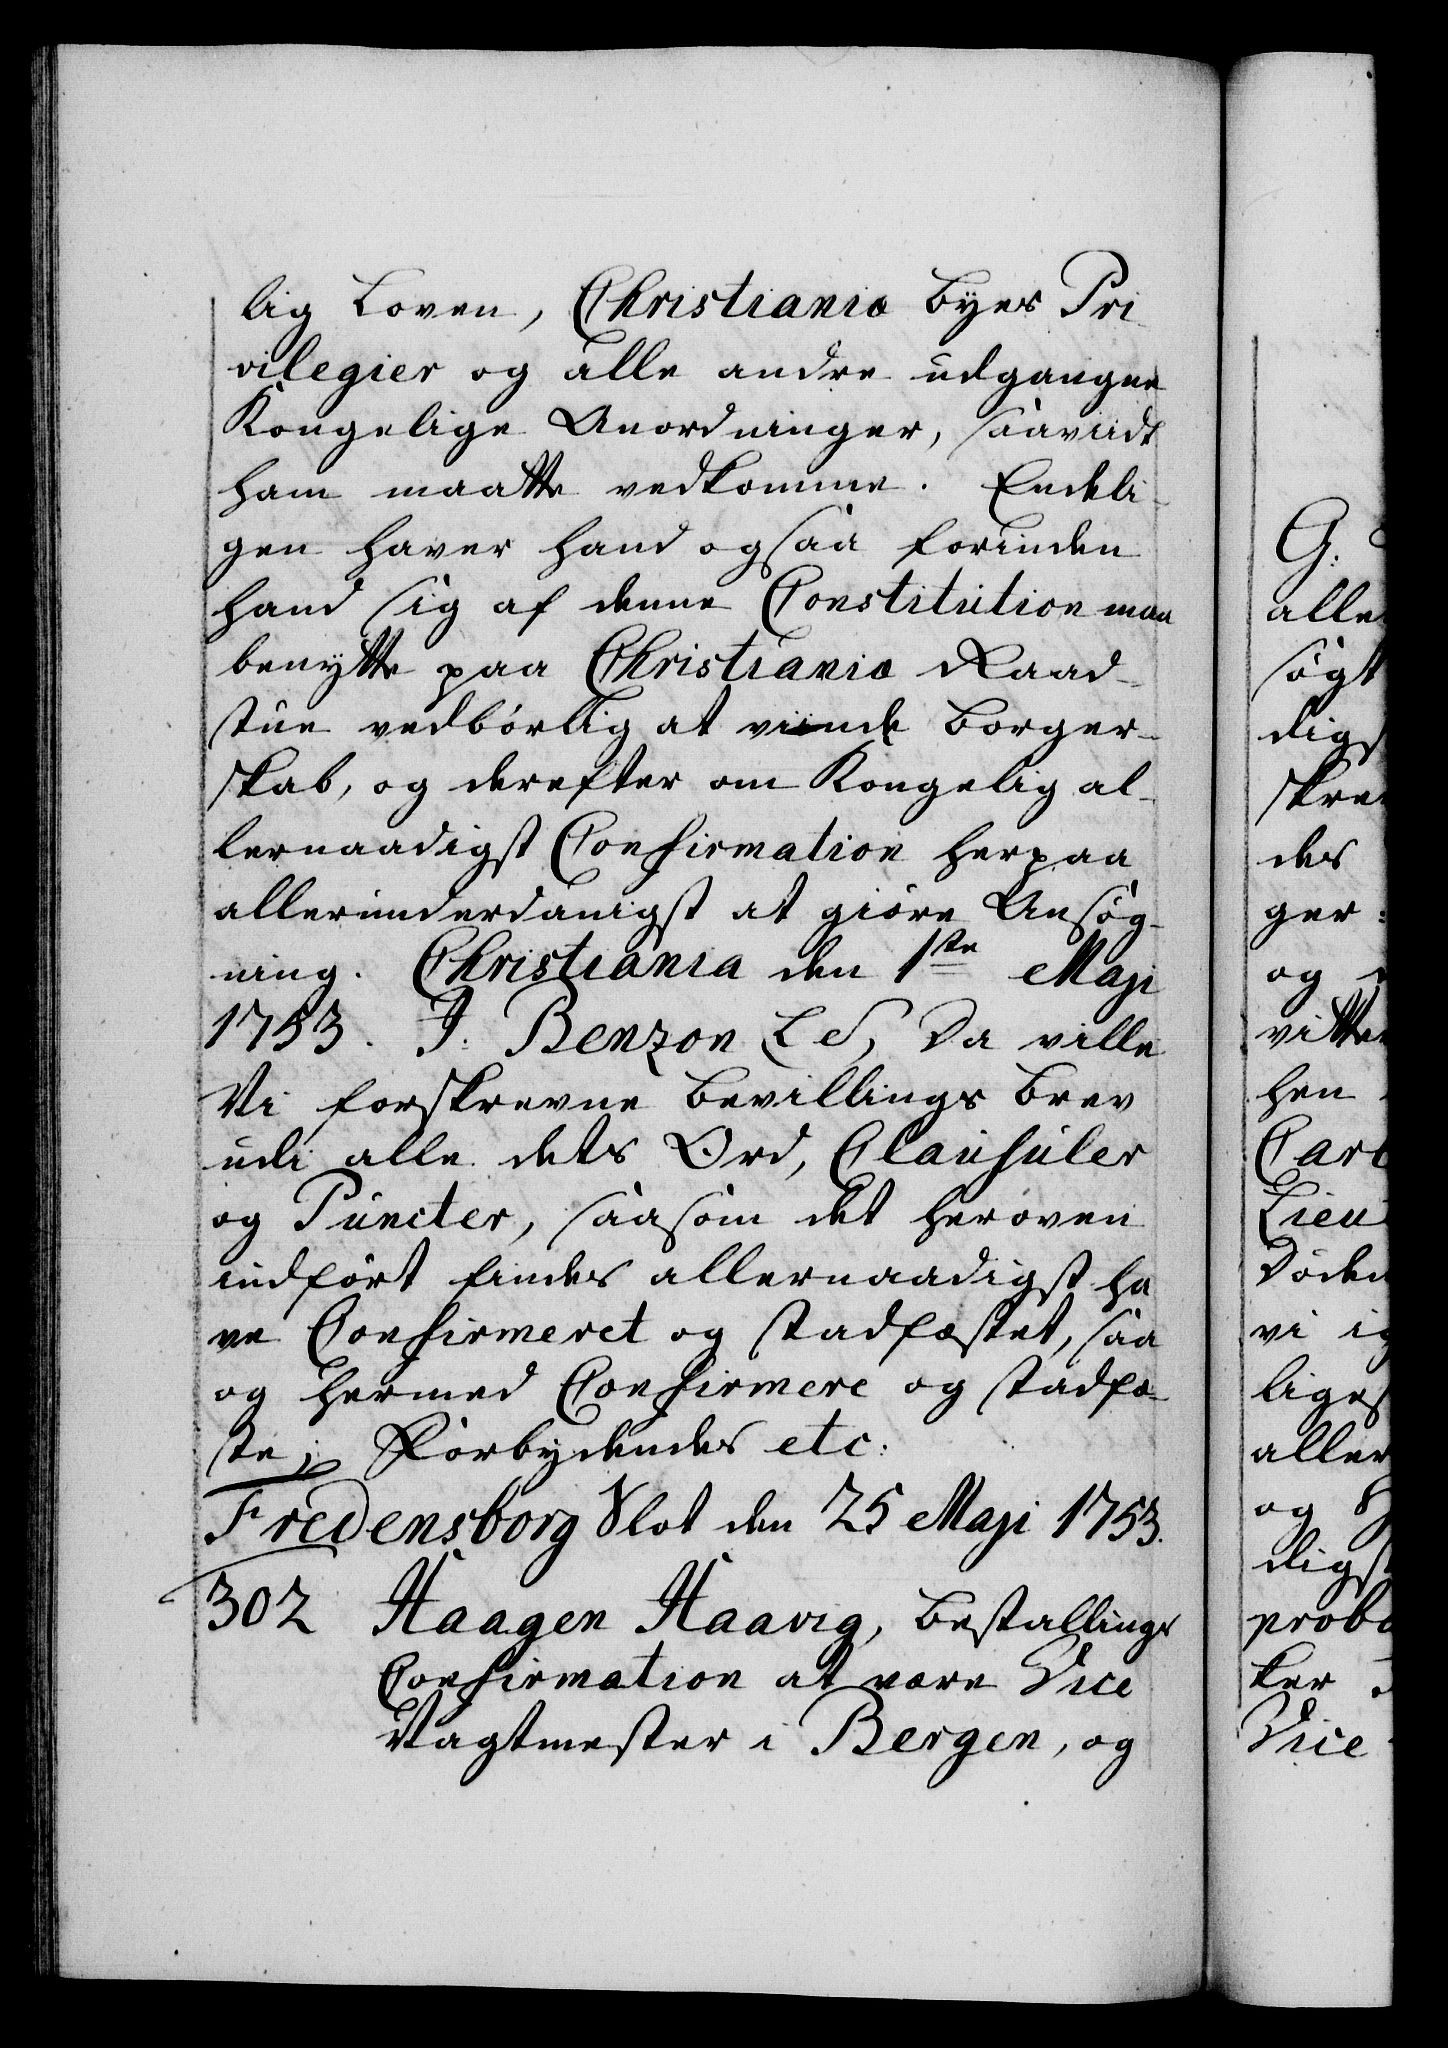 lig Loven, Christiania Byes Pri
vilegier og alle andre udgangne
Kongelige Anordninger, saavidt
ham maatte vedkomme. Endeli-
gen haver hand ogsaa forinden
hand sig af denne Constitution maa
benytte paa Christiania Raad-
stue vedbørlig at vinde Borger-
skab, og derefter om Kongelig al-
lernaadigst Confirmation herpaa
allerunderdanigst at giøre Ansøg-
ning. Christiania den 1ste Maji
1753. J. Benzon LS, Da ville
Vi forskrevne Bevillings Brev
udi alle dets Ord, Clausuler
og Puncter, saasom det heroven
indført findes allernaadigst ha
ve Confirmeret og stadfæstet, saa
og hermed Confirmere og stadfæ-
ste; Forbydendes etc:
Fredensborg Slot den 25 Maji 1753.
302 Haagen Haavig, Bestallings
Confirmation at være Vice
Vagtmester i Bergen, og
G:
alle
søgt
digs
skre
des
ger
og
vitte
hen
Carl
Lieu
Døden
vi ig
liges
aller
og
digs
proba
ker
Vice